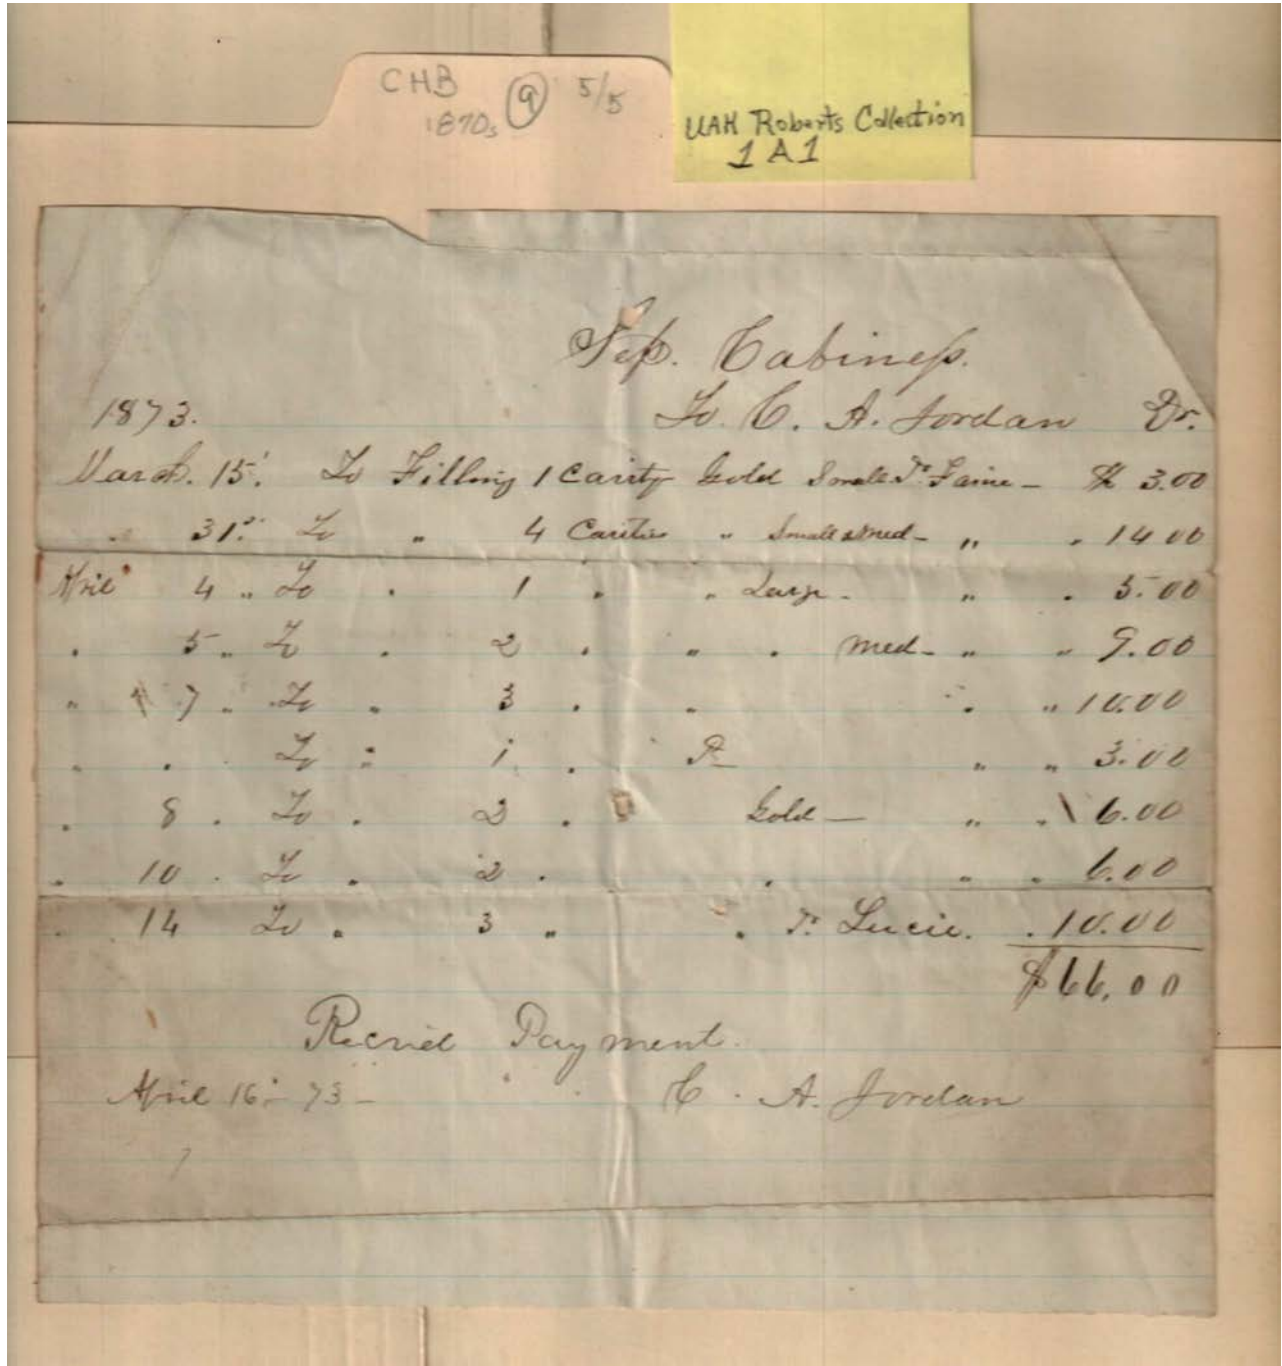 CHB 9 5/5
1870s
UAH Roberts Collection
1 A1
Sep. Cabiness.
1873. To C. A. Jordan Dr.
March. 15. To Filling 1 Cavity Gold Small Fr. Fanie - $ 3.00
" 31. To " 4 Cavities " Small & Med - " " 14 00
April 4 " To " 1 " " Large - " " 5.00
" 5 " To " 2 " " " Med - " " 9.00
" 7 " To " 3 " " " " 10.00
" " To " 1 " " " 3.00
" 8 " To " 2 " Gold — " " 6.00
" 10 " To " 2 " " " " 6.00
" 14 To " 3 " " Fr. Lucie. " 10.00
$66.00
Recvied Payment.
April 16 - 73 - C. A. Jordan